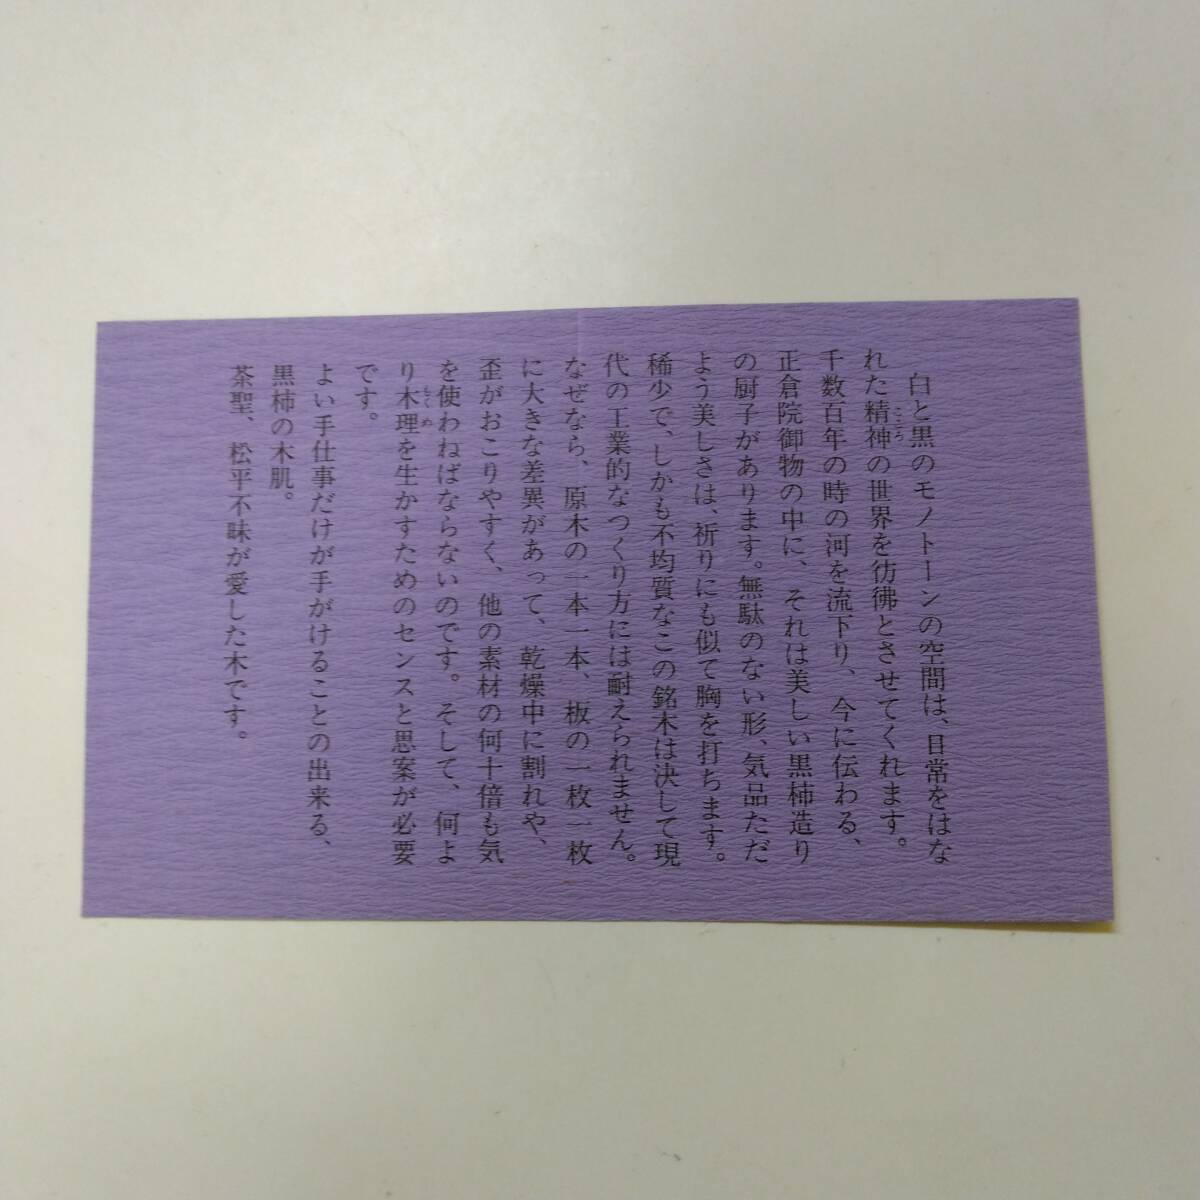 白と黒のモノトーンの空間は、日常をはな
れた精神の世界を彷彿とさせてくれます。
こころ
千数百年の時の河を流下り、今に伝わる、
正倉院御物の中に、それは美しい黒柿造り
の厨子があります。無駄のない形、気品ただ
よう美しさは、祈りにも似て胸を打ちます。
稀少で、しかも不均質なこの銘木は決して現
代の工業的なつくり方には耐えられません。
なぜなら、原木の一本一本、板の一枚一枚
に大きな差異があって、乾燥中に割れや、
歪がおこりやすく、他の素材の何十倍も気
を使わねばならないのです。そして、何よ
り木理を生かすためのセンスと思案が必要
もくめ
です。
よい手仕事だけが手がけることの出来る、
黒柿の木肌。
茶聖、松平不昧が愛した木です。